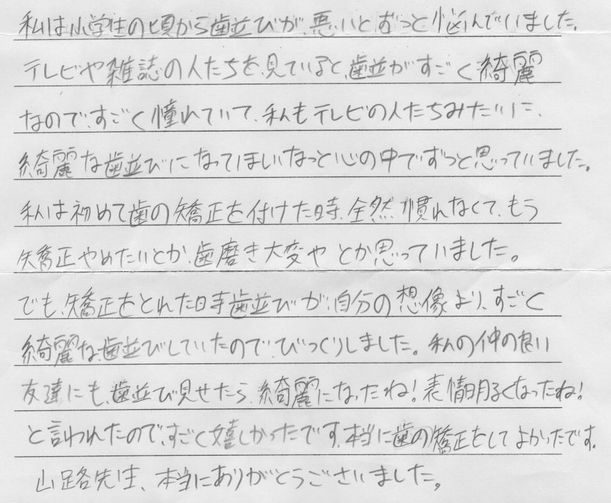 私は小学生の頃から歯並びが、悪いとずっと悩んでいました。
テレビや雑誌の人たちを、見ていると、歯並がすごく綺麗
なので、すごく憧れていて、私もテレビの人たちみたいに、
綺麗な歯並びになってほしいなっと心の中でずっと思っていました。
私は初めて歯の矯正を付けた時、全然慣れなくて、もう
矯正やめたいとか、歯磨き大変やとか思っていました。
でも、矯正をとれた時歯並びが、自分の想像より、すごく
綺麗な、歯並びしていたので、びっくりしました。私の仲の良い
友達にも、歯並び見せたら、綺麗になったね!表情明るくなったね!
と言われたので、すごく嬉しかったです。本当に歯の矯正をしてよかったです。
山路先生、本当にありがとうございました。